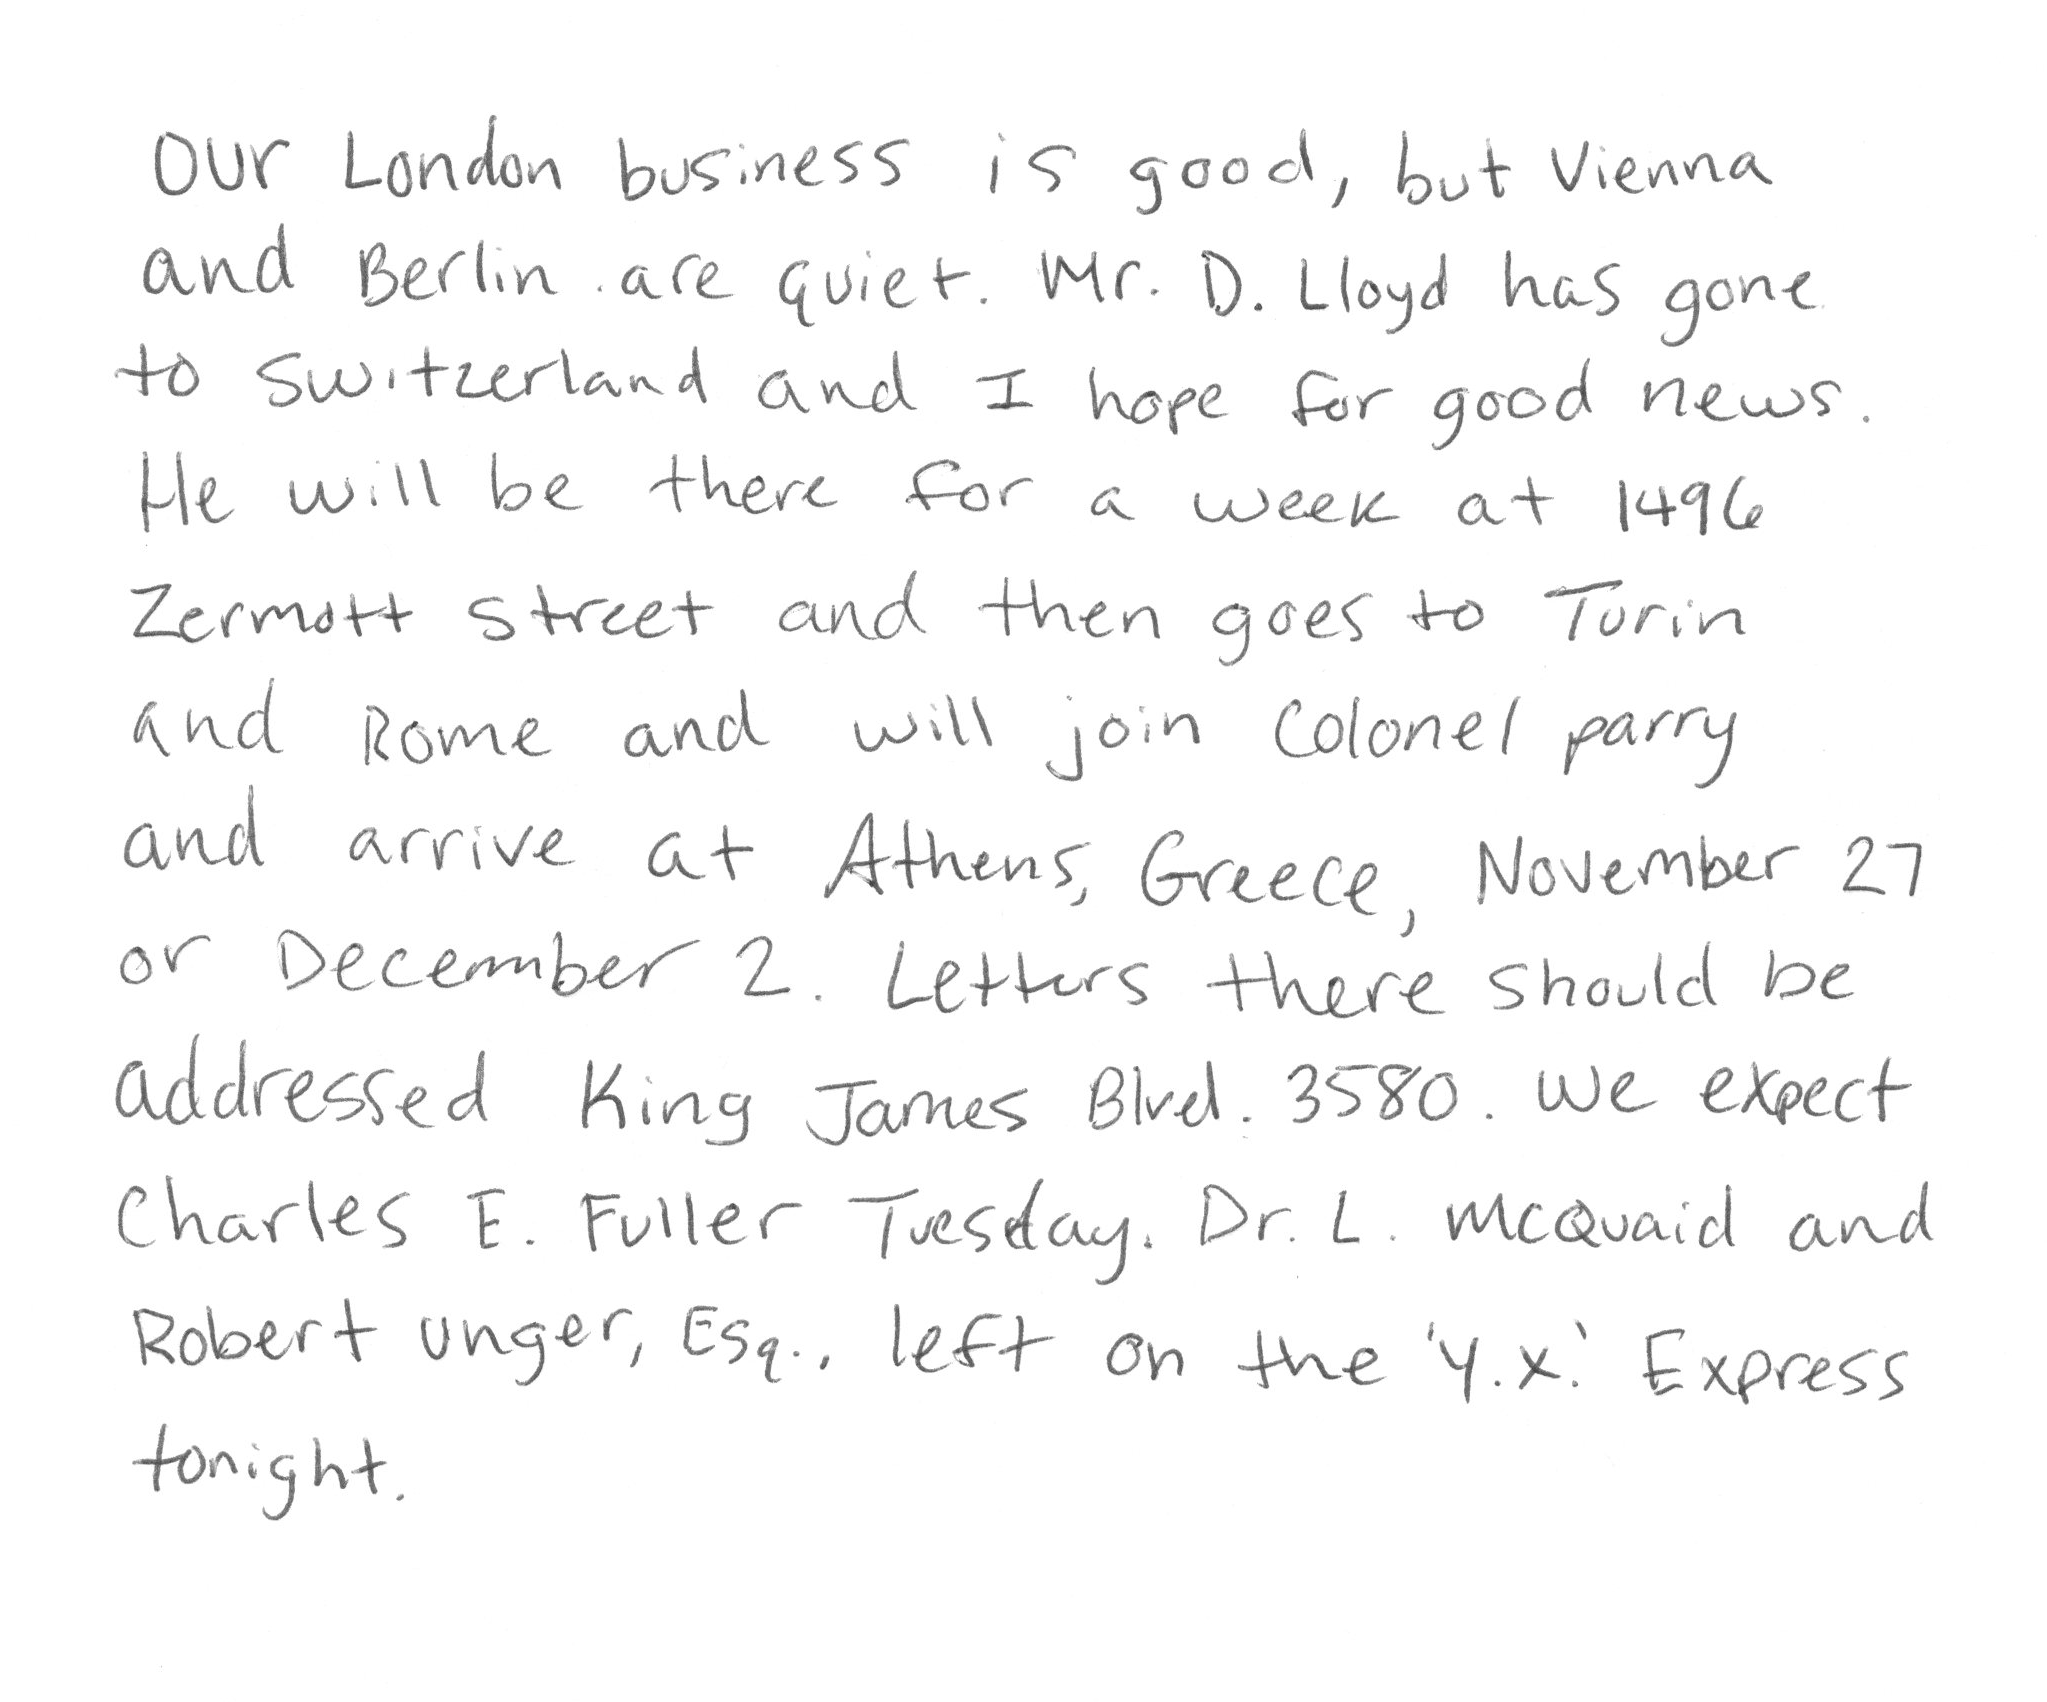 Our London business is good, but Vienna
and Berlin are quiet. Mr. D. Lloyd has gone
to Switzerland and I hope for good news.
He will be there for a week at 1496
Zermott street and then goes to Turin
and Rome and will join Colonel parry
and arrive at Athens, Greece, November 27
or December 2. Letters there should be
addressed King James Blvd. 3580. We expect
Charles E. Fuller Tuesday. Dr. L. McQuaid and
Robert Unger, Esq., left on the 'Y.X.' Express
tonight.